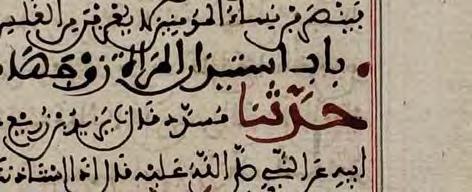 فينصرفن نساء المومنين لا يعرفن من الغلس
باب استيذان المراة زوجها
حدثنا مسدد قال نا يزيد بن زريع
ابيه عن النبي صلى الله عليه قال اذا استاذنت